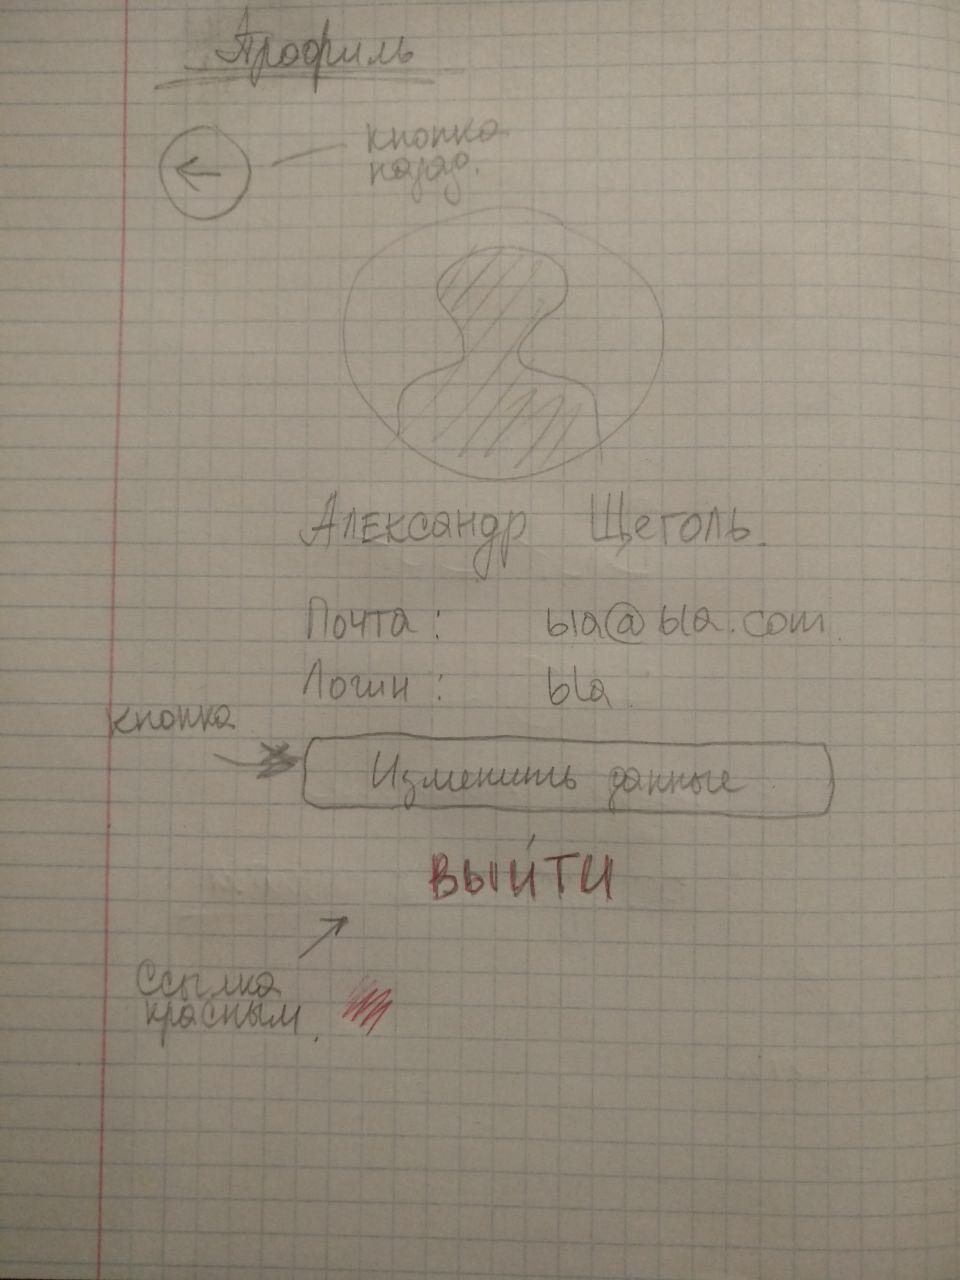 Профиль
кнопка
назад.
Александр Щеголь.
Почта: ыа@ыа.com.
Логин: ыа.
кнопка
Изменить данные
Выйти
Ссылка
красным.